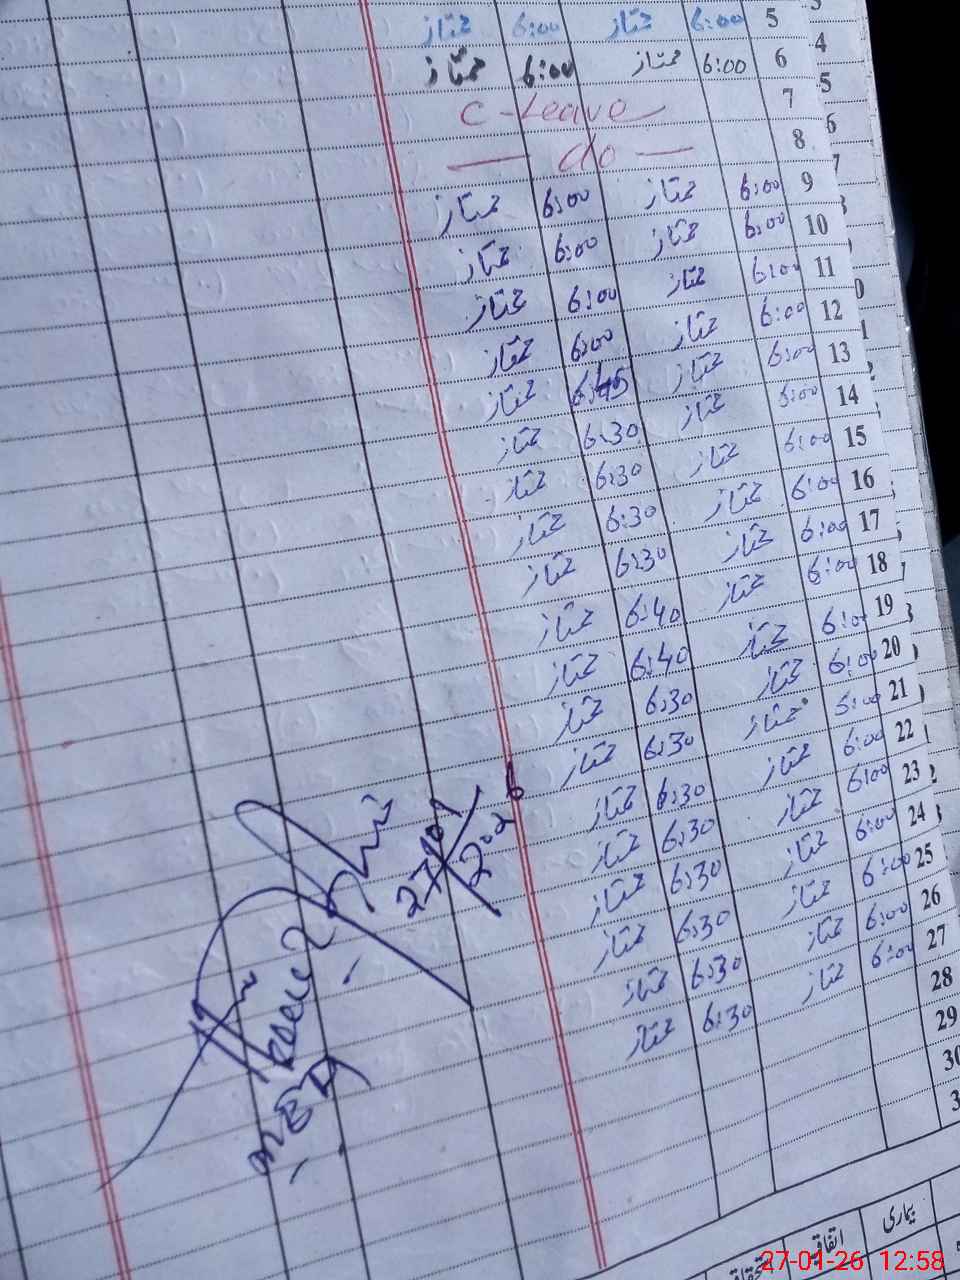 5 6:00 ممتاز 6:00 ممتاز
6 6:00 ممتاز 6:00 ممتاز
7 C-Leave
8 — do —
9 6:00 ممتاز 6:00 ممتاز
10 6:00 ممتاز 6:00 ممتاز
11 6:00 ممتاز 6:00 ممتاز
12 6:00 ممتاز 6:00 ممتاز
13 6:00 ممتاز 6:45 ممتاز
14 6:00 ممتاز 6:30 ممتاز
15 6:00 ممتاز 6:30 ممتاز
16 6:00 ممتاز 6:30 ممتاز
17 6:00 ممتاز 6:30 ممتاز
18 6:00 ممتاز 6:40 ممتاز
19 6:00 ممتاز 6:40 ممتاز
20 6:00 ممتاز 6:30 ممتاز
21 6:00 ممتاز 6:30 ممتاز
22 6:00 ممتاز 6:30 ممتاز
23 6:00 ممتاز 6:30 ممتاز
24 6:00 ممتاز 6:30 ممتاز
25 6:00 ممتاز 6:30 ممتاز
26 6:00 ممتاز 6:30 ممتاز
27 6:00 ممتاز 6:30 ممتاز
28
29
30
27/01/2026
بیماری
اتفاقیہ
27-01-26 12:58